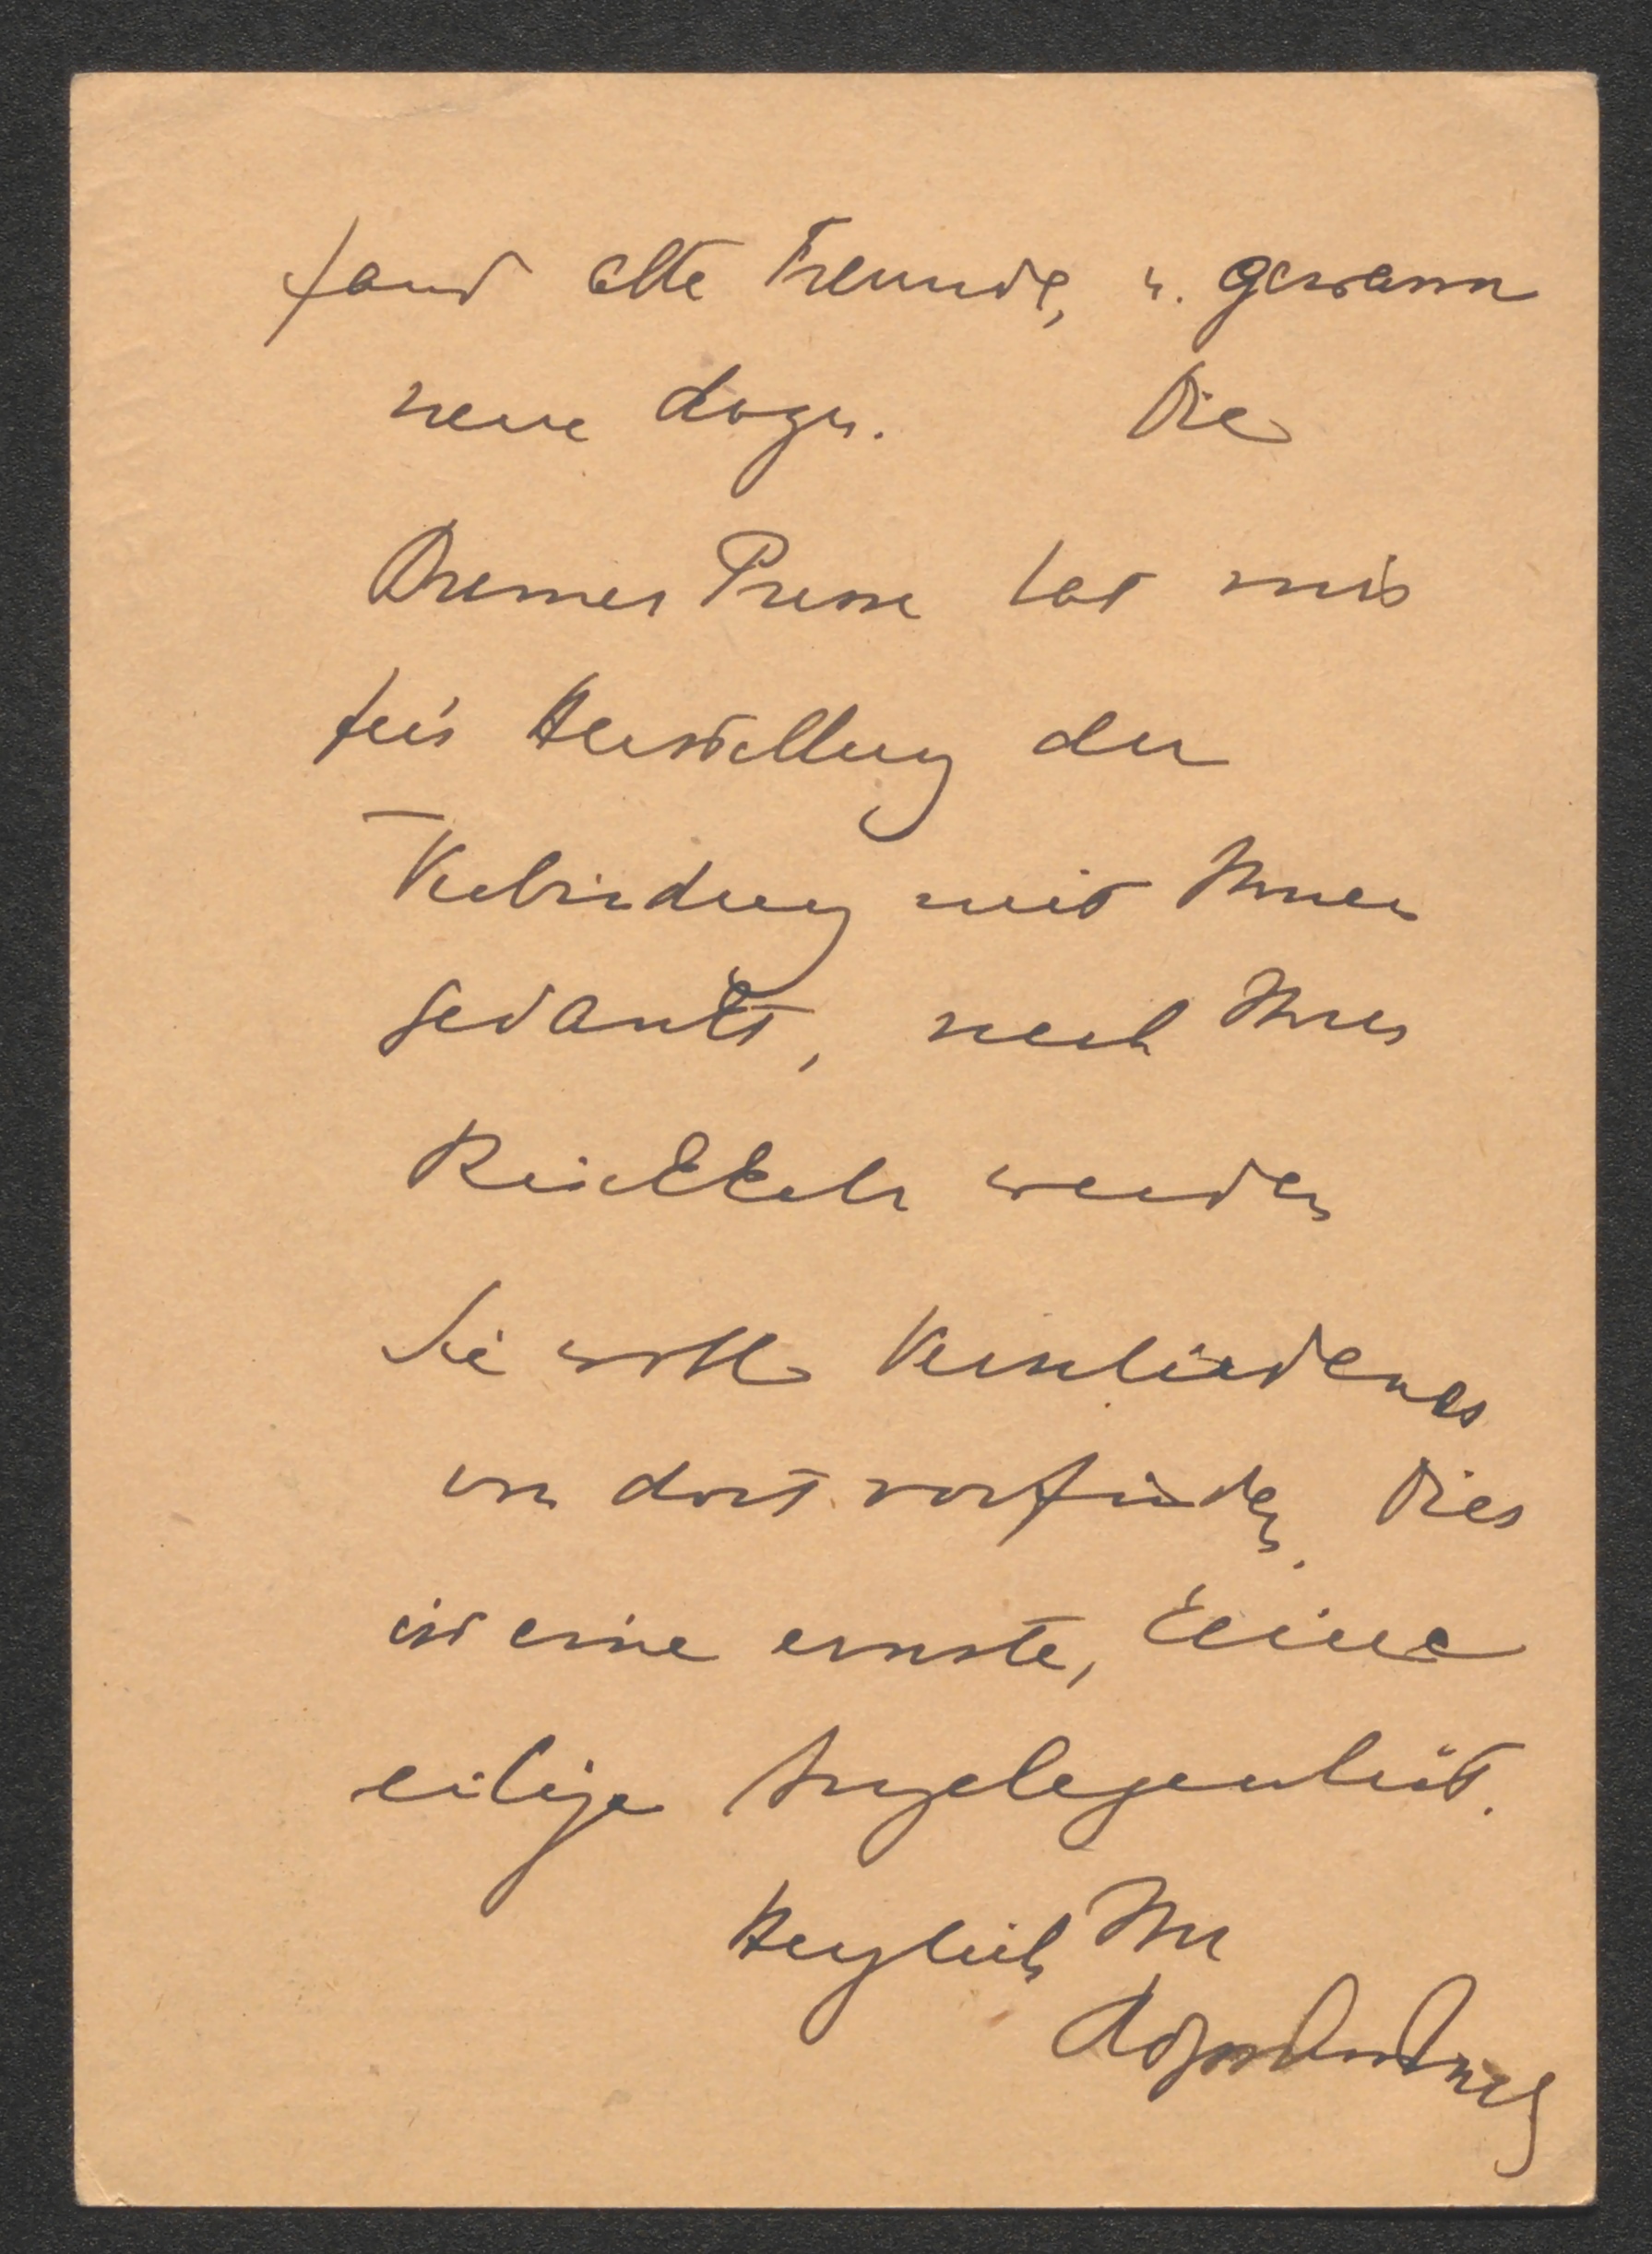 fand alte Freunde, u. gewann
neue dazu. Die
Bremer Presse hat mir
für Herstellung der
Verbindung mit Ihnen
gedankt, nach Ihrer
Rückkehr werden
Sie wohl Verschiedenes
von dort vorfinden. Dies
ist eine ernste, keine
eilige Angelegenheit.
Herzlich Ihr